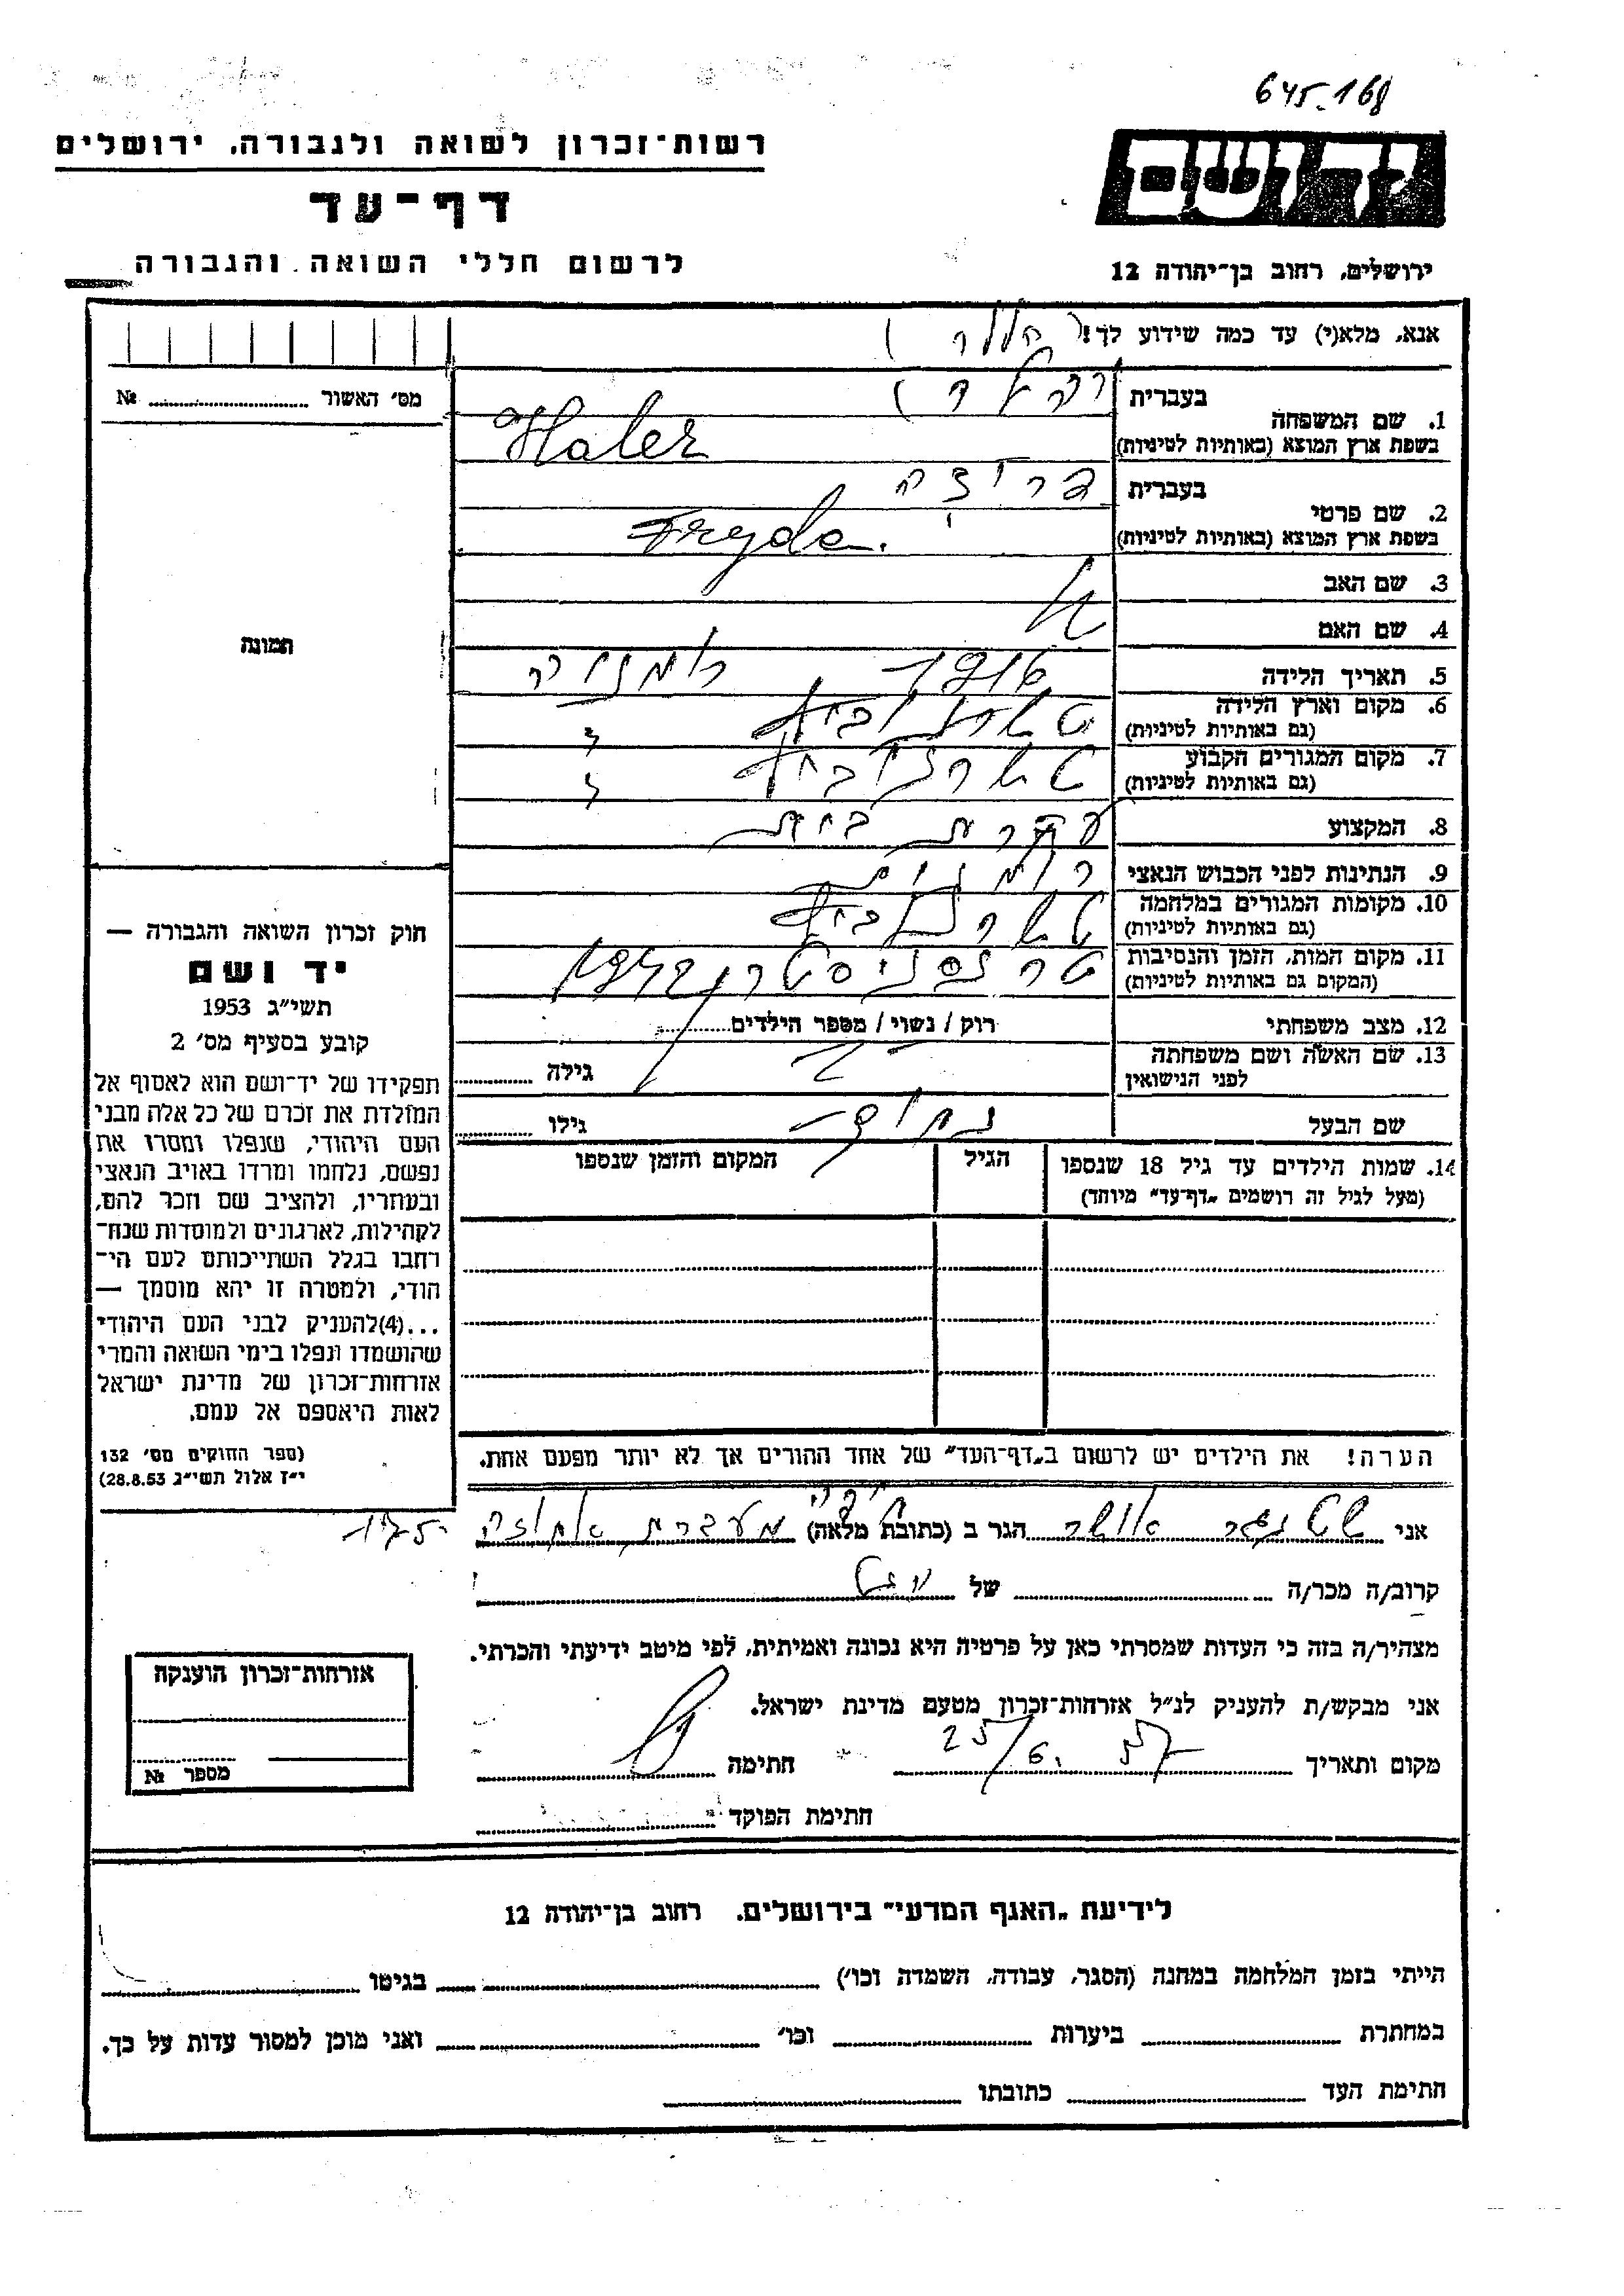 645.168
יד ושם
רשות־זכרון לשואה ולגבורה, ירושלים
דף־עד
לרשום חללי השואה והגבורה
ירושלים, רחוב בן־יהודה 12
אנא, מלא(י) עד כמה שידוע לך!
מס׳ האשור № 
1. שם המשפחה בעברית
בשפת ארץ המוצא (באותיות לטיניות) Haler
2. שם פרטי בעברית
בשפת ארץ המוצא (באותיות לטיניות) Fryda.
3. שם האב
4. שם האם
תמונה
5. תאריך הלידה
6. מקום וארץ הלידה
(גם באותיות לטיניות)
7. מקום המגורים הקבוע
(גם באותיות לטיניות)
8. המקצוע עקרת בית
9. הנתינות לפני הכבוש הנאצי
10. מקומות המגורים במלחמה
(גם באותיות לטיניות)
11. מקום המות, הזמן והנסיבות
(המקום גם באותיות לטיניות)
12. מצב משפחתי רוק / נשוי / מספר הילדים
13. שם האשה ושם משפחתה
לפני הנישואין גילה
שם הבעל גילו
14. שמות הילדים עד גיל 18 שנספו הגיל המקום והזמן שנספו
(מעל לגיל זה רושמים „דף־עד״ מיוחד)
חוק זכרון השואה והגבורה —
יד ושם
תשי״ג 1953
קובע בסעיף מס׳ 2
תפקידו של יד־ושם הוא לאסוף אל
המולדת את זכרם של כל אלה מבני
העם היהודי, שנפלו ומסרו את
נפשם, נלחמו ומרדו באויב הנאצי
ובעוזריו, ולהציב שם וזכר להם,
לקהילות, לארגונים ולמוסדות שנח־
רבו בגלל השתייכותם לעם הי־
הודי, ולמטרה זו יהא מוסמך —
...(4)להעניק לבני העם היהודי
שהושמדו ונפלו בימי השואה והמרי
אזרחות־זכרון של מדינת ישראל
לאות היאספם אל עמם.
(ספר החוקים מס׳ 132
י״ז אלול תשי״ג 28.8.53)
הערה! את הילדים יש לרשום ב„דף־העד״ של אחד ההורים אך לא יותר מפעם אחת.
אני הגר ב (כתובת מלאה) מעברת
קרוב/ה מכר/ה של
מצהיר/ה בזה כי העדות שמסרתי כאן על פרטיה היא נכונה ואמיתית, לפי מיטב ידיעתי והכרתי.
אני מבקש/ת להעניק לנ״ל אזרחות־זכרון מטעם מדינת ישראל.
מקום ותאריך 25/6. 57 חתימה
חתימת הפוקד
אזרחות־זכרון הוענקה
מספר №
לידיעת „האגף המדעי״ בירושלים, רחוב בן־יהודה 12
הייתי בזמן המלחמה במחנה (הסגר, עבודה, השמדה וכו׳) בגיטו
במחתרת ביערות וכו׳ ואני מוכן למסור עדות על כך.
חתימת העד כתובתו